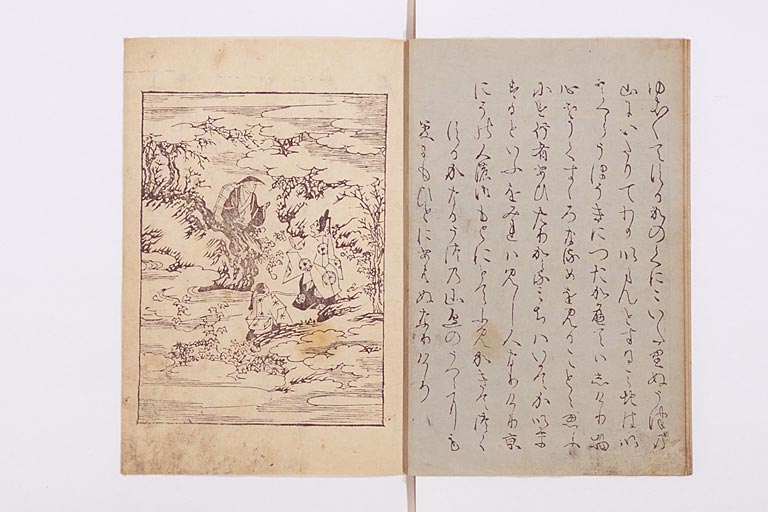 ゆき〳〵てするかのくににいたりぬうつの
山にいたりてわかいらんとするみちはいと
いとくらうほそきにつたかえてはしけり物
心ほそくすゝろなるめを見ることゝ思ふ
にす行者あひたりかゝるみちはいかてかいま
するといふをみれは見し人なりけり京
にその人の御もとにとてふみかきてつく
するかなるうつの山邊のうつゝにも
夢にもひとにあはぬなりけり